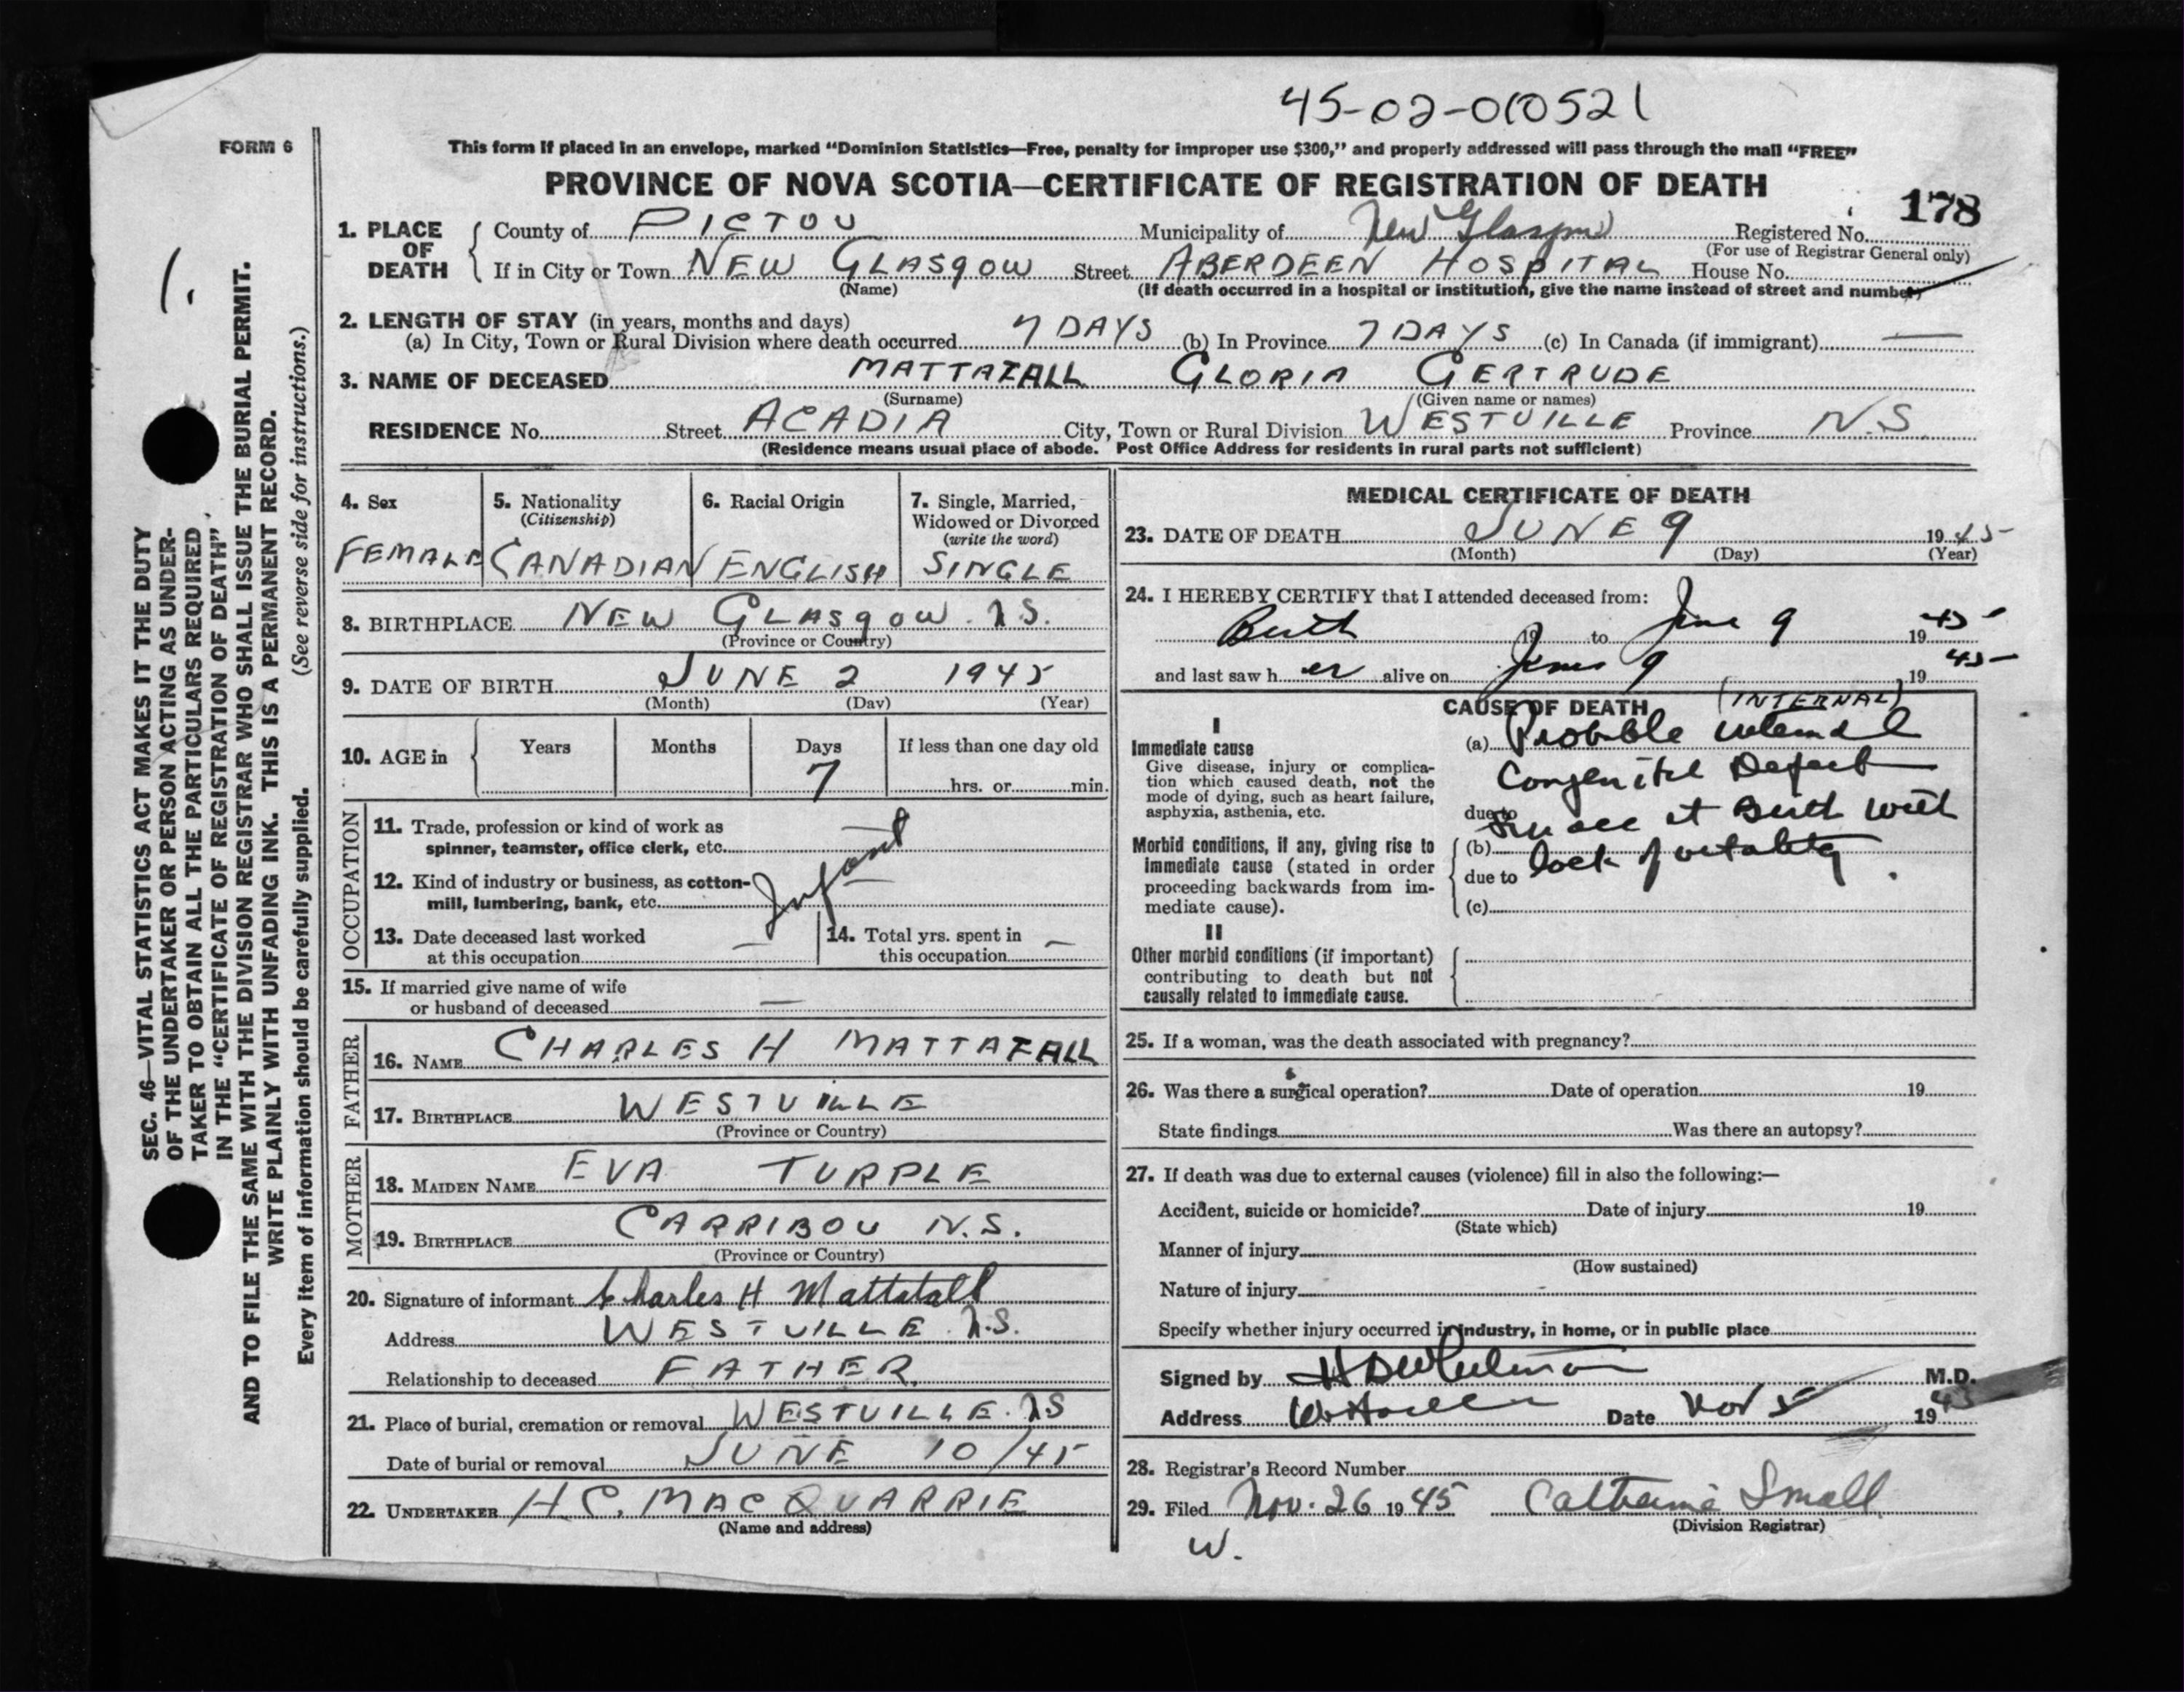 45-02-010521
FORM 6
This form if placed in an envelope, marked "Dominion Statistics—Free, penalty for improper use $300," and properly addressed will pass through the mail "FREE"
PROVINCE OF NOVA SCOTIA—CERTIFICATE OF REGISTRATION OF DEATH
178
1. PLACE OF DEATH
County of PICTOU Municipality of New Glasgow Registered No.
(For use of Registrar General only)
If in City or Town NEW GLASGOW Street ABERDEEN HOSPITAL House No.
(Name) (If death occurred in a hospital or institution, give the name instead of street and number)
2. LENGTH OF STAY (in years, months and days)
(a) In City, Town or Rural Division where death occurred 7 DAYS (b) In Province 7 DAYS (c) In Canada (if immigrant) —
3. NAME OF DECEASED MATTATALL GLORIA GERTRUDE
(Surname) (Given name or names)
RESIDENCE No. Street ACADIA City, Town or Rural Division WESTVILLE Province N.S.
(Residence means usual place of abode. Post Office Address for residents in rural parts not sufficient)
4. Sex
FEMALE
5. Nationality
(Citizenship)
CANADIAN
6. Racial Origin
ENGLISH
7. Single, Married,
Widowed or Divorced
(write the word)
SINGLE
8. BIRTHPLACE NEW GLASGOW. N.S.
(Province or Country)
9. DATE OF BIRTH JUNE 2 1945
(Month) (Day) (Year)
10. AGE in
Years Months Days If less than one day old
7 hrs. or min.
OCCUPATION
11. Trade, profession or kind of work as
spinner, teamster, office clerk, etc.
12. Kind of industry or business, as cotton-
mill, lumbering, bank, etc.
Infant
13. Date deceased last worked
at this occupation —
14. Total yrs. spent in
this occupation —
15. If married give name of wife
or husband of deceased —
FATHER
16. NAME CHARLES H MATTATALL
17. BIRTHPLACE WESTVILLE
(Province or Country)
MOTHER
18. MAIDEN NAME EVA TURPLE
19. BIRTHPLACE CARRIBOU N.S.
(Province or Country)
20. Signature of informant Charles H Mattatall
Address WESTVILLE N.S.
Relationship to deceased FATHER.
21. Place of burial, cremation or removal WESTVILLE. NS
Date of burial or removal JUNE 10/45
22. UNDERTAKER H C. MACQUARRIE
(Name and address)
MEDICAL CERTIFICATE OF DEATH
23. DATE OF DEATH JUNE 9 1945
(Month) (Day) (Year)
24. I HEREBY CERTIFY that I attended deceased from:
Birth 19 to June 9 1945
and last saw her alive on June 9, 1945
CAUSE OF DEATH (INTERNAL)
I
Immediate cause
Give disease, injury or complica-
tion which caused death, not the
mode of dying, such as heart failure,
asphyxia, asthenia, etc.
(a) Probable internal
Congenital Defect
due to
at Birth with
Morbid conditions, if any, giving rise to
immediate cause (stated in order
proceeding backwards from im-
mediate cause).
(b) lack of vitality.
due to
(c)
II
Other morbid conditions (if important)
contributing to death but not
causally related to immediate cause.
25. If a woman, was the death associated with pregnancy?
26. Was there a surgical operation? Date of operation 19
State findings Was there an autopsy?
27. If death was due to external causes (violence) fill in also the following:—
Accident, suicide or homicide? Date of injury 19
(State which)
Manner of injury
(How sustained)
Nature of injury
Specify whether injury occurred in industry, in home, or in public place
Signed by M.D.
Address Date Nov 5 1945
28. Registrar's Record Number
29. Filed Nov. 26 1945 Catherine Small
(Division Registrar)
W.
1.
SEC. 46—VITAL STATISTICS ACT MAKES IT THE DUTY
OF THE UNDERTAKER OR PERSON ACTING AS UNDER-
TAKER TO OBTAIN ALL THE PARTICULARS REQUIRED
IN THE "CERTIFICATE OF REGISTRATION OF DEATH"
AND TO FILE THE SAME WITH THE DIVISION REGISTRAR WHO SHALL ISSUE THE BURIAL PERMIT.
WRITE PLAINLY WITH UNFADING INK. THIS IS A PERMANENT RECORD.
Every item of information should be carefully supplied. (See reverse side for instructions.)